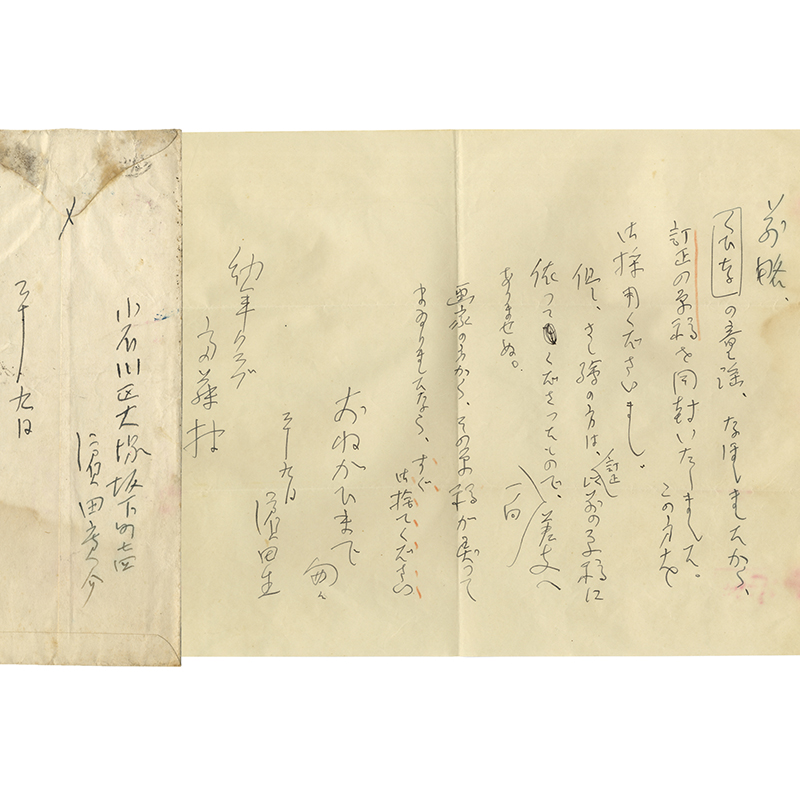 前略、
くひなの童謡、なほしましたから、
訂正の原稿を同封いたしました。この方を
御採用くださいまし。
但し、さし繪の方は、訂正以前の原稿に
依つてくださつたもので、差支へ
一向
ありませぬ。
画家の方から、その原稿が戻つて
まゐりましたなら、すぐ
御捨てください
おねがひまで 匆々
三十九日
濱田生
幼年クラブ
斎藤様
小石川区大塚坂下町
濱田廣介